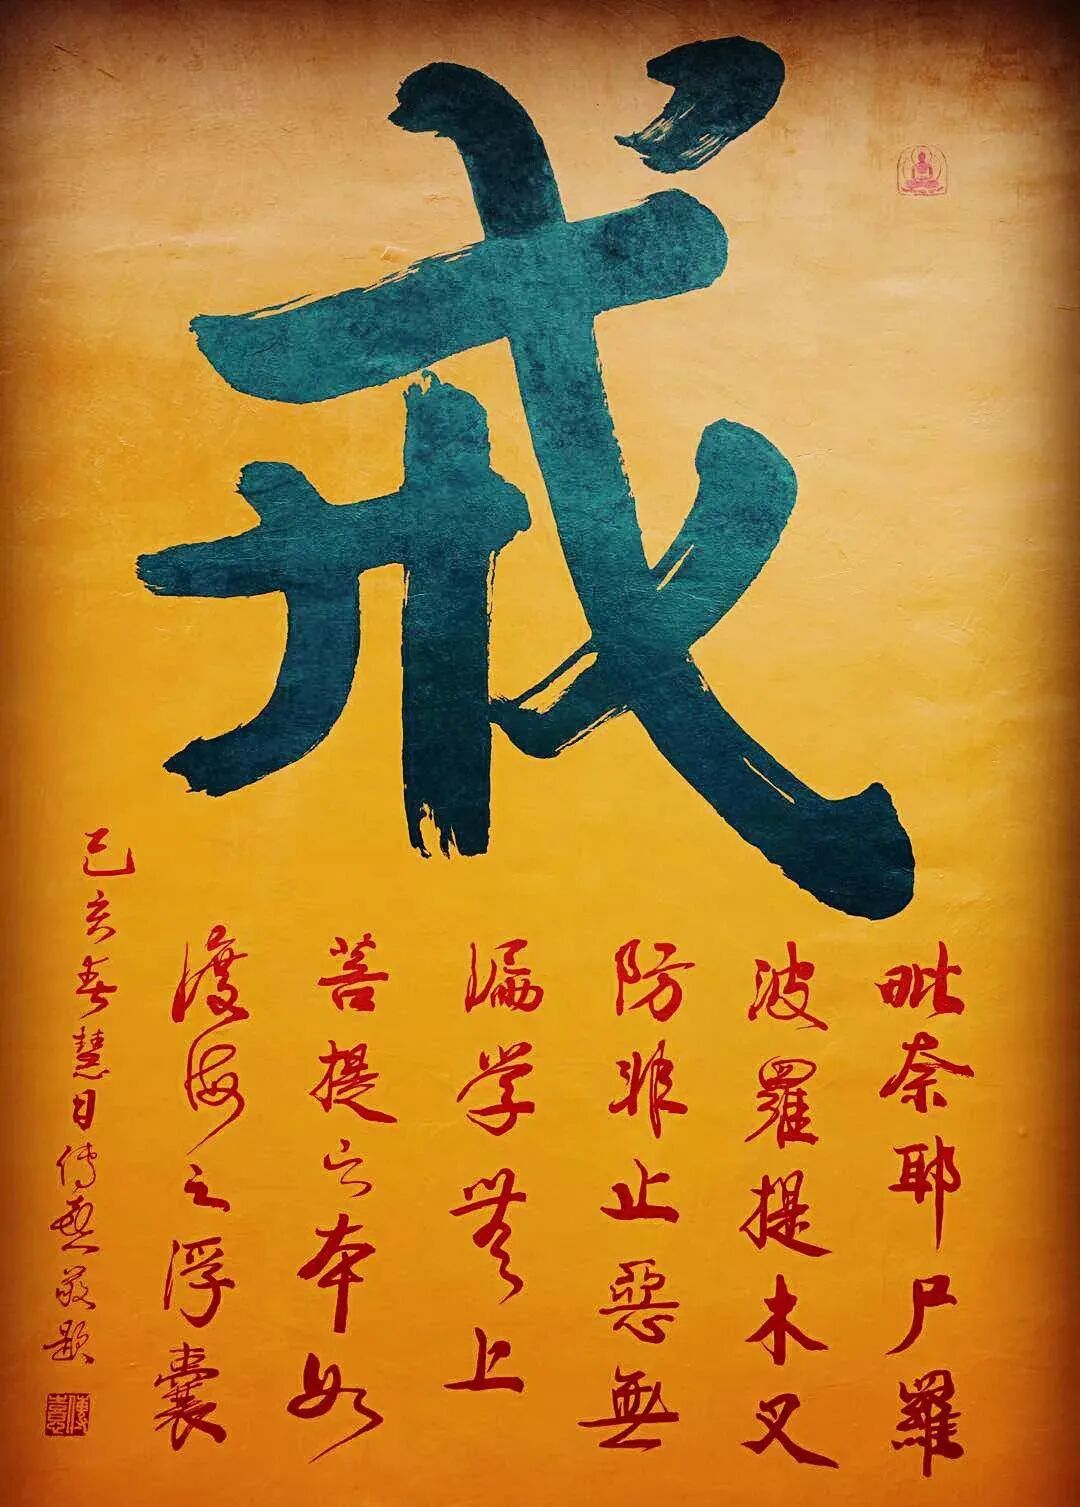 戒
毗奈耶尸羅
波羅提木叉
防非止惡無
漏学無上
菩提之本如
渡海之浮囊
己亥春慧日傳喜敬題